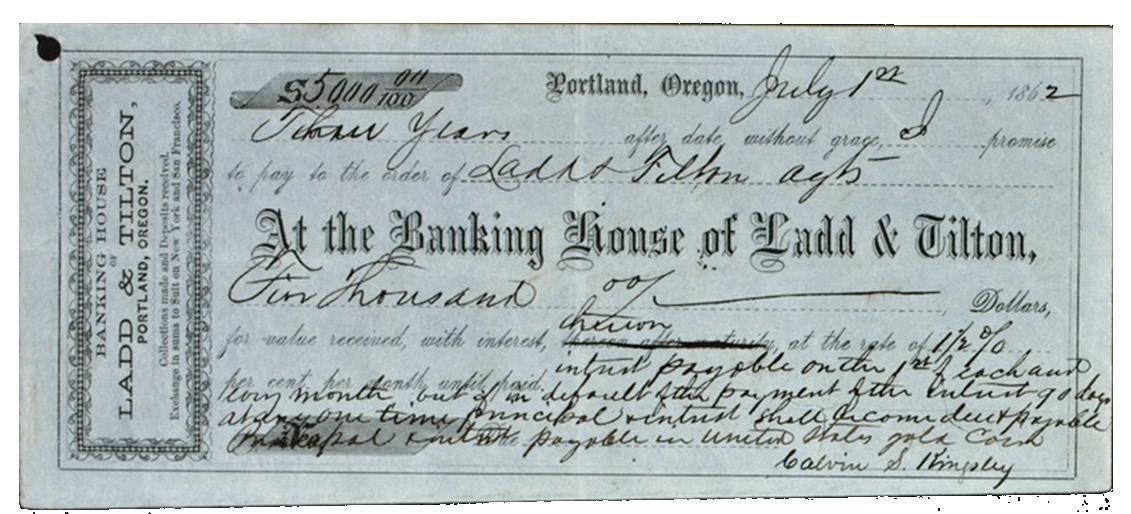 BANKING HOUSE
OF
LADD & TILTON,
PORTLAND, OREGON.
Collections made and Deposits received.
Exchange in sums to Suit on New York and San Francisco.
$5000 00/100
Portland, Oregon, July 1st, 1862
Three Years after date, without grace, I promise
to pay to the order of Ladd & Tilton Agts
At the Banking House of Ladd & Tilton,
Five Thousand 00/ Dollars,
thereon
for value received, with interest, thereon after maturity, at the rate of 1 1/2 %
per cent. per month until paid. intrest payable on the 1st of each and
every month but if in default of the payment of the intrest 90 days
at any one time, principal & intrest shall become due & payable
Principal & intrest payable in United States gold Coin
Calvin S. Kingsley